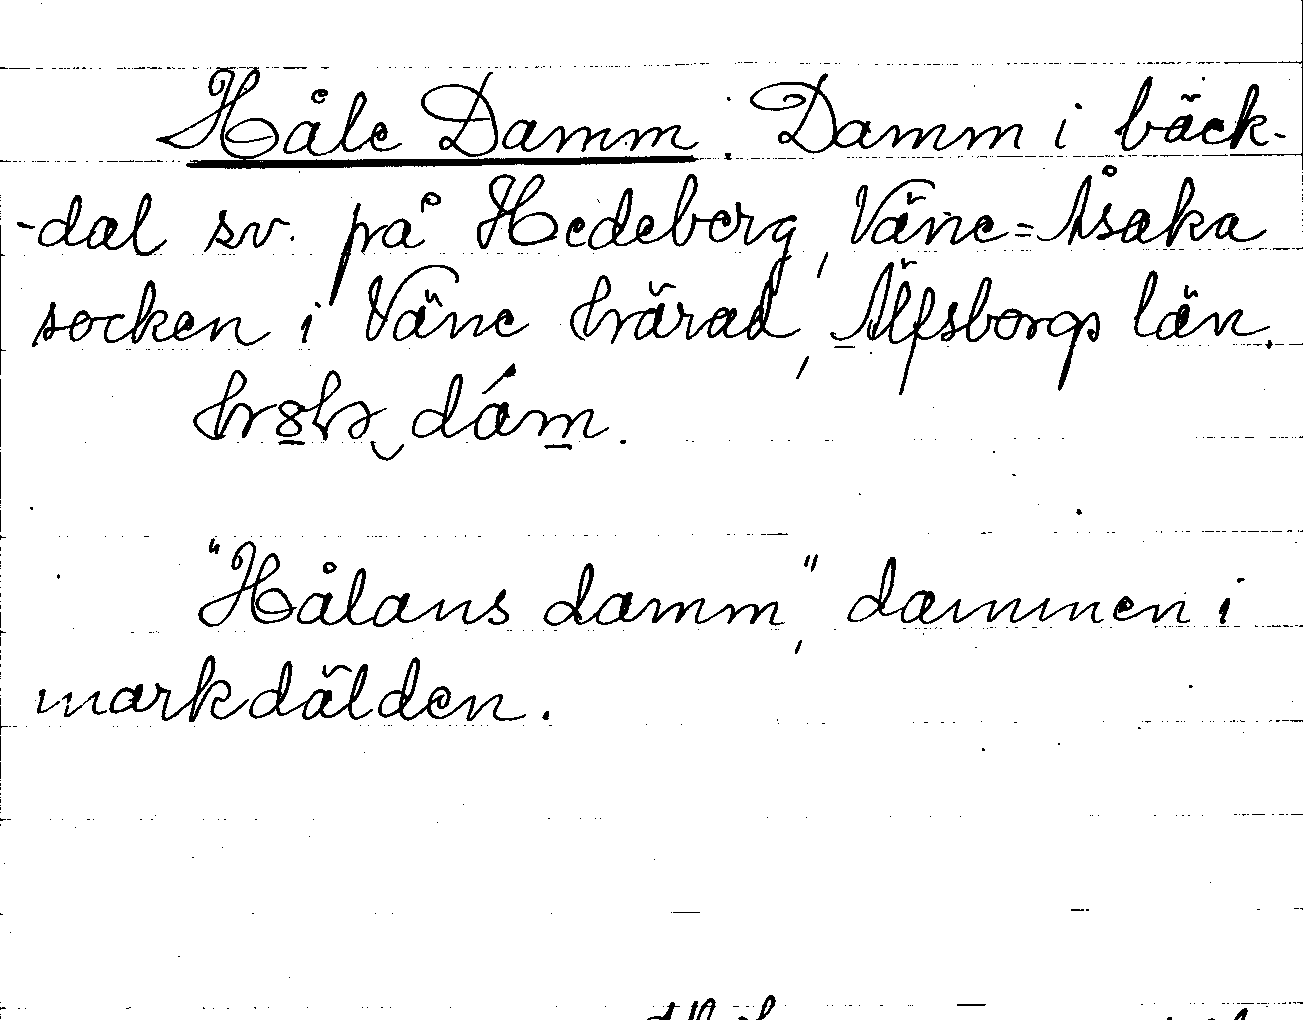 Håle Damm. Damm i bäck-
-dal sv. på Hedeberg, Väne=Åsaka
socken i Väne härad, Älfsborgs län.
dám.
"Hålans damm", dammen i
markdälden.